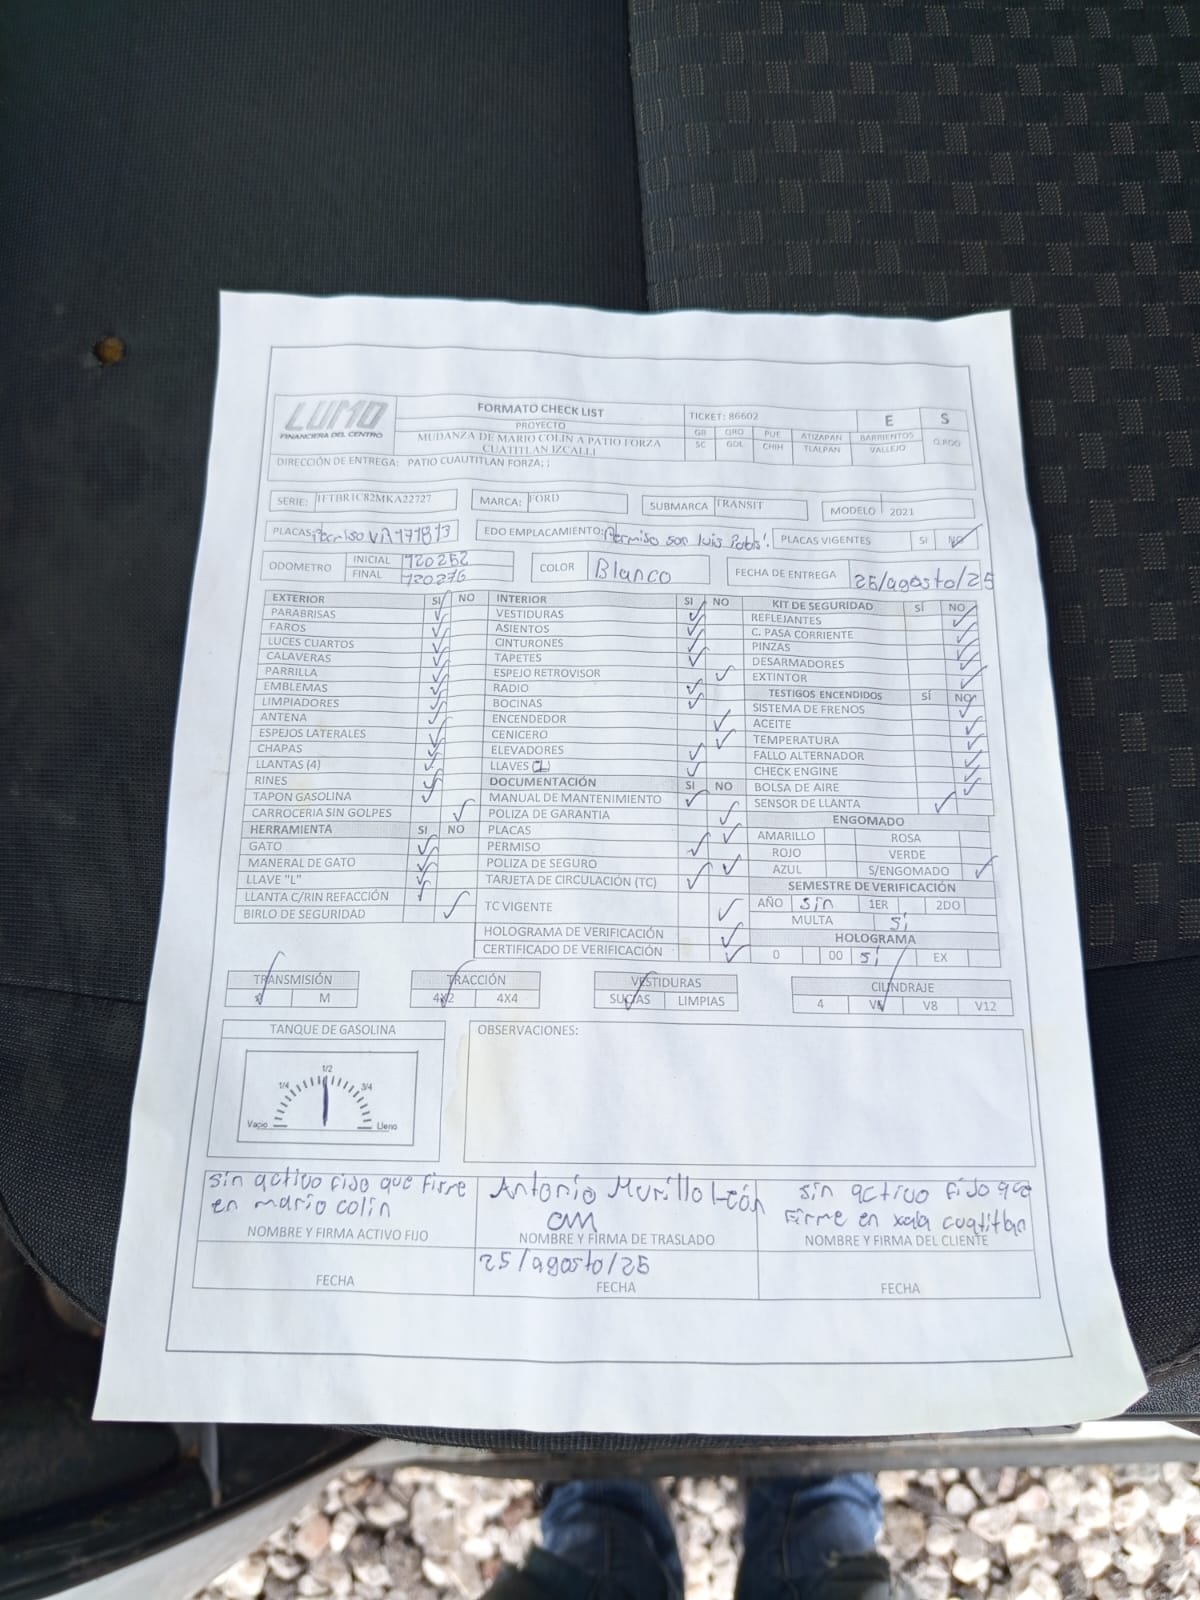 LUMO
FINANCIERA DEL CENTRO
FORMATO CHECK LIST
PROYECTO
MUDANZA DE MARIO COLIN A PATIO FORZA
CUATITLAN IZCALLI
TICKET: 86602 E S
GB QRO PUE ATIZAPAN BARRIENTOS
SC GDL CHIH TLALPAN VALLEJO
DIRECCIÓN DE ENTREGA: PATIO CUAUTITLAN FORZA; ;
SERIE: 1FTBR1C82MKA22727 MARCA: FORD SUBMARCA TRANSIT MODELO 2021
PLACAS: EDO EMPLACAMIENTO: Permiso san Luis PLACAS VIGENTES SI NO
ODOMETRO INICIAL 120252
FINAL 120276
COLOR Blanco FECHA DE ENTREGA 25/agosto/25
EXTERIOR SI NO
PARABRISAS
FAROS
LUCES CUARTOS
CALAVERAS
PARRILLA
EMBLEMAS
LIMPIADORES
ANTENA
ESPEJOS LATERALES
CHAPAS
LLANTAS (4)
RINES
TAPON GASOLINA
CARROCERIA SIN GOLPES
HERRAMIENTA SI NO
GATO
MANERAL DE GATO
LLAVE "L"
LLANTA C/RIN REFACCIÓN
BIRLO DE SEGURIDAD
INTERIOR SI NO
VESTIDURAS
ASIENTOS
CINTURONES
TAPETES
ESPEJO RETROVISOR
RADIO
BOCINAS
ENCENDEDOR
CENICERO
ELEVADORES
LLAVES
DOCUMENTACIÓN SI NO
MANUAL DE MANTENIMIENTO
POLIZA DE GARANTIA
PLACAS
PERMISO
POLIZA DE SEGURO
TARJETA DE CIRCULACIÓN (TC)
TC VIGENTE
HOLOGRAMA DE VERIFICACIÓN
CERTIFICADO DE VERIFICACIÓN
KIT DE SEGURIDAD SÍ NO
REFLEJANTES
C. PASA CORRIENTE
PINZAS
DESARMADORES
EXTINTOR
TESTIGOS ENCENDIDOS SÍ NO
SISTEMA DE FRENOS
ACEITE
TEMPERATURA
FALLO ALTERNADOR
CHECK ENGINE
BOLSA DE AIRE
SENSOR DE LLANTA
ENGOMADO
AMARILLO ROSA
ROJO VERDE
AZUL S/ENGOMADO
SEMESTRE DE VERIFICACIÓN
AÑO sin 1ER 2DO
MULTA si
HOLOGRAMA
0 00 si EX
TRANSMISIÓN
M
TRACCIÓN
4X2 4X4
VESTIDURAS
SUCIAS LIMPIAS
CILINDRAJE
4 V6 V8 V12
TANQUE DE GASOLINA
1/2
1/4 3/4
Vacio Lleno
OBSERVACIONES:
sin activo fijo que firme
en mario colin
NOMBRE Y FIRMA ACTIVO FIJO
FECHA
Antonio Murillo León
NOMBRE Y FIRMA DE TRASLADO
25/agosto/25
FECHA
sin activo fijo que
firme en xala cuatitlan
NOMBRE Y FIRMA DEL CLIENTE
FECHA